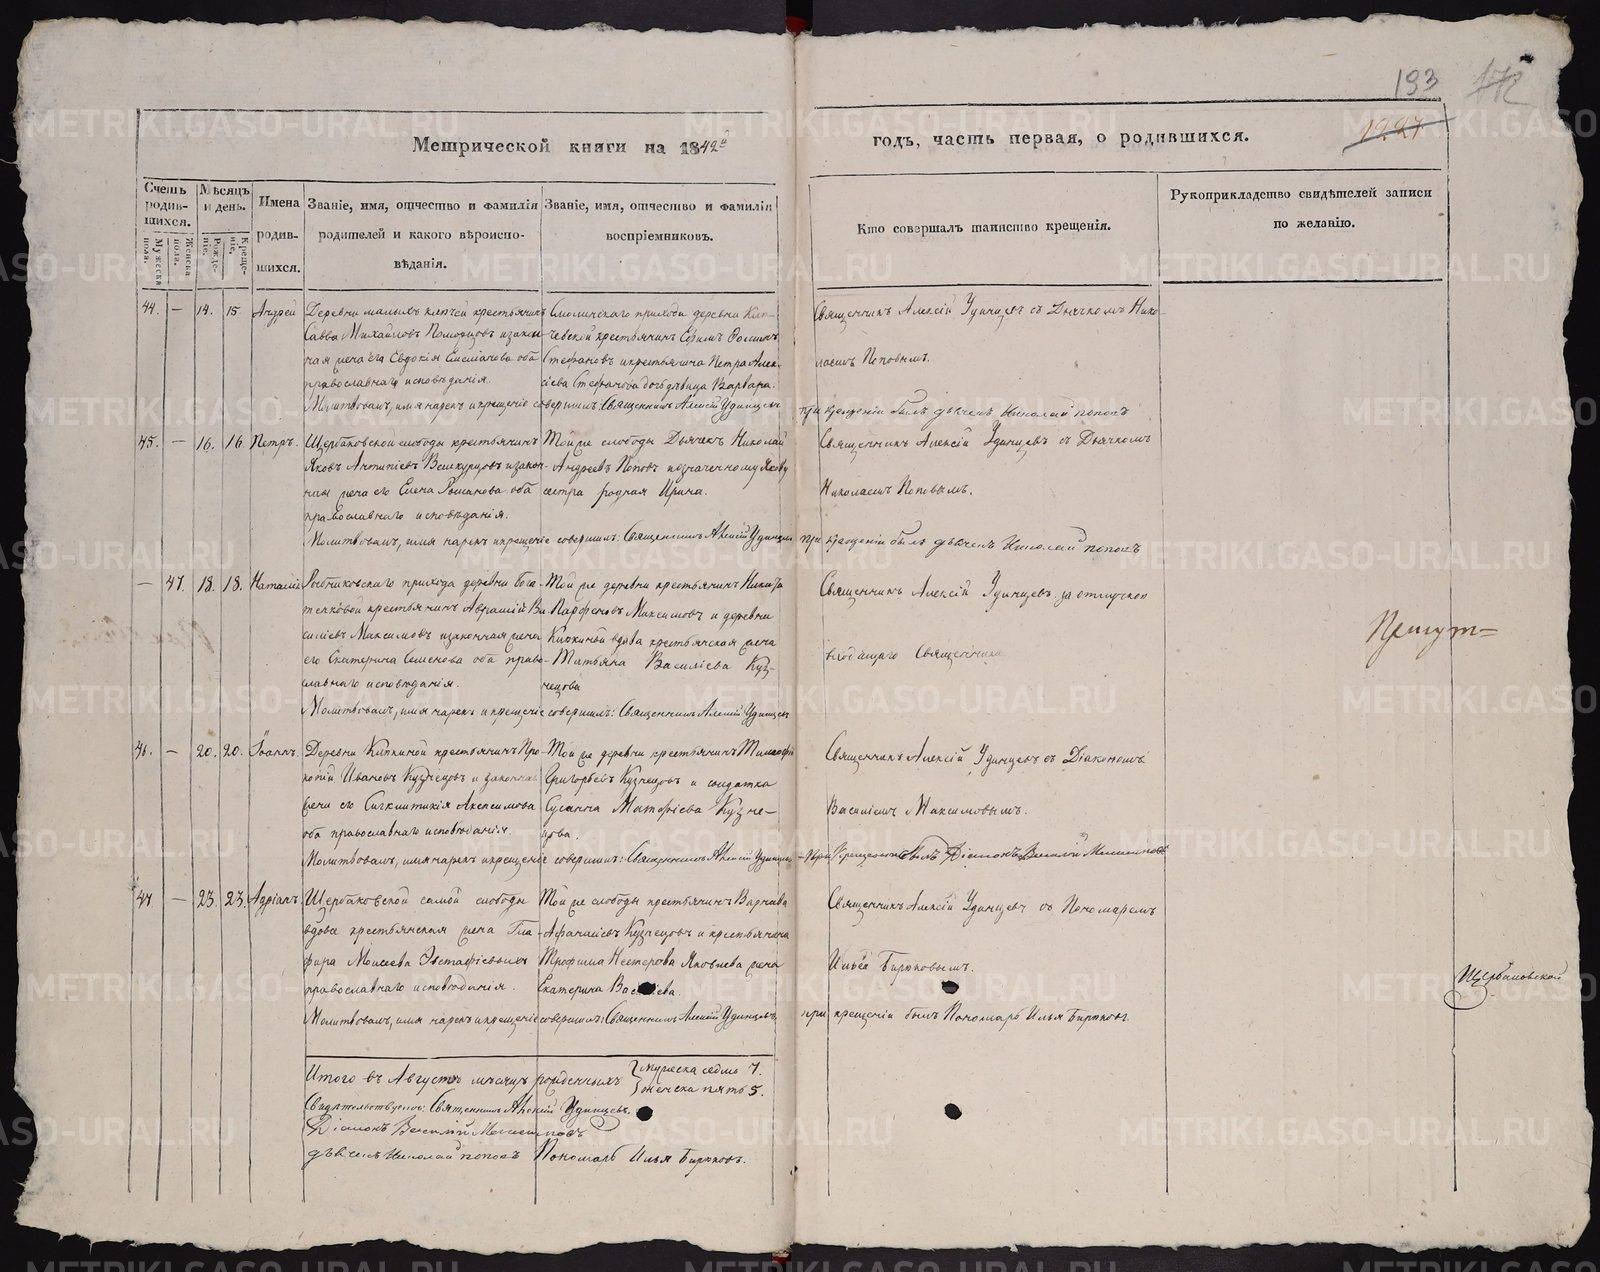 193 172
1227.
Метрической книги на 1842й годъ, часть первая, о родившихся.
Счетъ родив-шихся.
Мужеска пола.
Женска пола.
Мѣсяцъ и день.
Рожде-нія.
Креще-нія.
Имена родив-шихся.
Званіе, имя, отчество и фамилія
родителей и какого вѣроиспо-
вѣданія.
Званіе, имя, отчество и фамилія
воспріемниковъ.
Кто совершалъ таинство крещенія.
Рукоприкладство свидѣтелей записи
по желанію.
44. — 14. 15 Андрей
Деревни малыхъ ключей крестьянинъ
Савва Михайловъ Поморцовъ изакон-
ная жена его Евдокія Емеліанова оба
православнаго исповѣданія.
Смолинскаго прихода деревни
крестьянинъ Ефимъ
Стефановъ икрестьянина Петра Алек-
сіева Стефанова дочь дѣвица Варвара.
Священникъ Алексій Удинцевъ съ Дьячкомъ Нико-
лаемъ Поповымъ.
Молитвовалъ, имя нарекъ и крещеніе совершилъ: Священникъ Алексій Удинцевъ
при крещеніи былъ дьячекъ Николай поповъ
45. — 16. 16. Петръ.
Щербаковской слободы крестьянинъ
Яковъ Антипіевъ изакон-
ная жена его Елена Романова оба
православнаго исповѣданія.
Той же слободы Дьячекъ Николай
Андреевъ Поповъ иозначенному Якову
сестра родная Ирина.
Священникъ Алексій Удинцевъ съ Дьячкомъ
Николаемъ Поповымъ.
Молитвовалъ, имя нарекъ икрещеніе совершилъ: Священникъ Алексій Удинцевъ
при крещеніи былъ дьячекъ Николай поповъ
— 47. 18. 18. Наталія
прихода деревни бога-
тенковой крестьянинъ Аврамій Ва-
силіевъ Максимовъ изаконная жена
его Екатерина Семенова оба право-
славнаго исповѣданія.
Той же деревни крестьянинъ Никита
Парфеновъ Максимовъ и деревни
Кипкиной вдова крестьянская жена
Татьяна Василіева Куз-
нецова
Священникъ Алексій Удинцевъ за отлучкою
Священника
Молитвовалъ, имя нарекъ и крещеніе совершилъ: Священникъ Алексій Удинцевъ
46. — 20. 20. Іоаннъ.
Деревни Кипкиной крестьянинъ Про-
копій Ивановъ Кузнецовъ и законная
жена его Сигклитикія Анисимова
оба православнаго исповѣданія.
Той же деревни крестьянинъ Тимофей
Григорьевъ Кузнецовъ и солдатка
Сусанна Матфіева Кузне-
цова.
Священникъ Алексій Удинцевъ съ Діакономъ
Василіемъ Максимовымъ.
Молитвовалъ, имя нарекъ икрещеніе совершилъ: Священникъ Алексій Удинцевъ
При Крещеніи былъ Діаконъ Василій Максимовъ
47 — 23. 23. Адріанъ.
Щербаковской самой слободы
вдова крестьянская жена Гла-
фира Моисеева Евстафіевыхъ
православнаго исповѣданія.
Той же слободы крестьянинъ Варнава
Афанасіевъ Кузнецовъ и крестьянина
Трофима Нестерова Яковлева жена
Екатерина
Священникъ Алексій Удинцевъ съ Пономаремъ
Ильею Бирюковымъ.
Молитвовалъ, имя нарекъ икрещеніе совершилъ: Священникъ Алексій Удинцевъ
при крещеніи былъ Пономарь Илья Бирюковъ.
Причт=
Щербаковской
Итого въ Августѣ мѣсяцѣ рожденныхъ мужеска седмь 7.
женска пять 5.
Свидѣтельствуютъ: Священникъ Алексій Удинцевъ.
Діаконъ Василій Максимовъ
дьячекъ Николай поповъ Пономарь Илья Бирюковъ.
METRIKI.GASO-URAL.RU